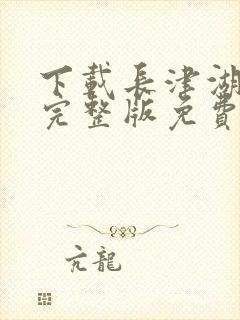 下載長津湖
完整版免費
亢龍